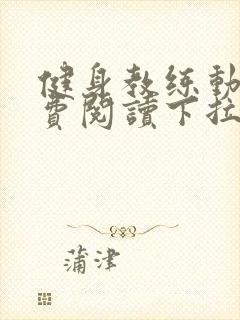 健身教练動
費閱讀下拉
蒲津